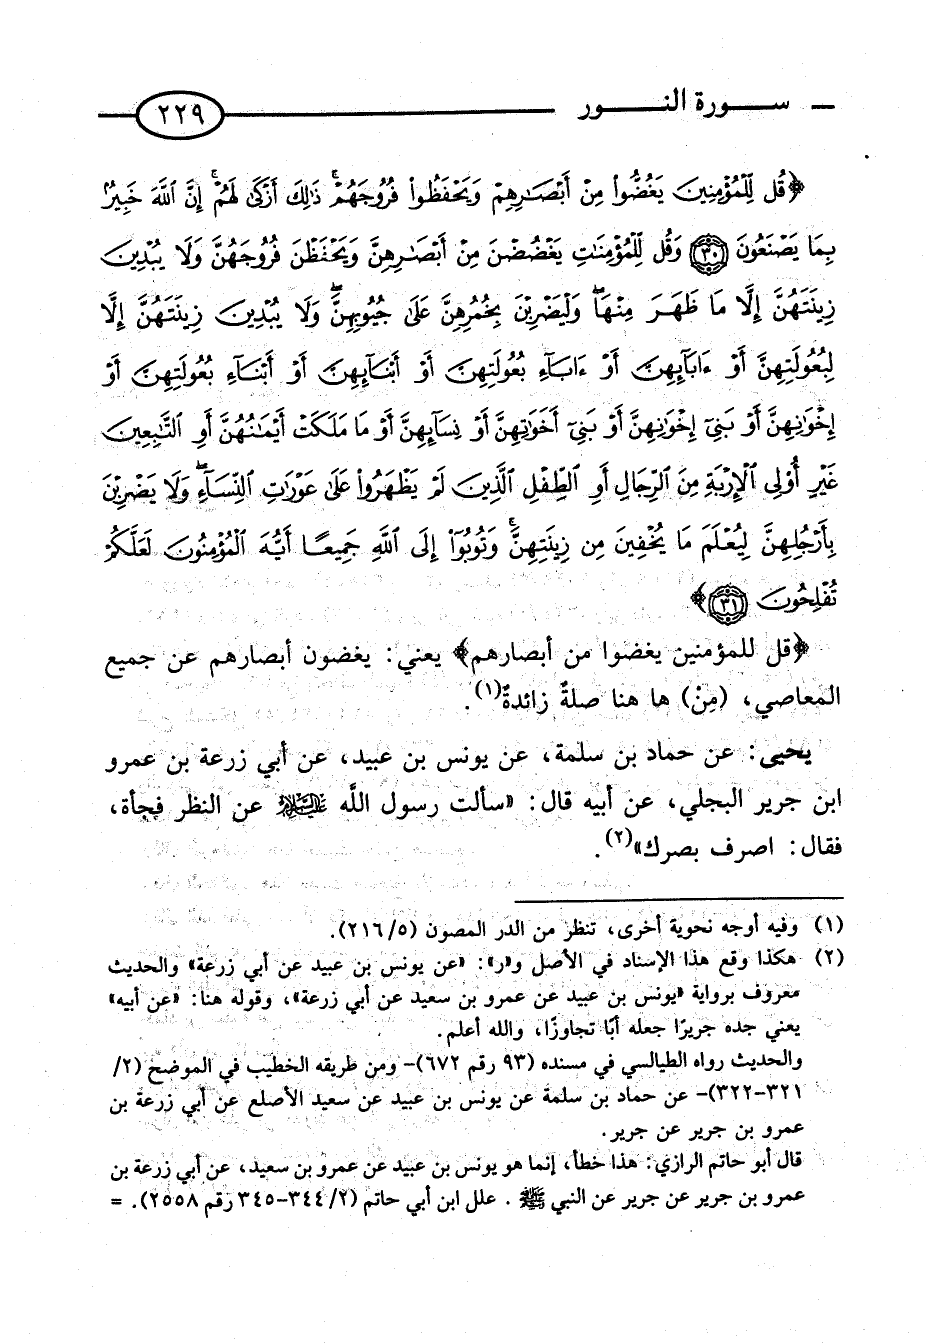 سورة النور
٢٢٩
﴿قُل لِّلْمُؤْمِنِينَ يَغُضُّوا۟ مِنْ أَبْصَٰرِهِمْ وَيَحْفَظُوا۟ فُرُوجَهُمْ ۚ ذَٰلِكَ أَزْكَىٰ لَهُمْ ۗ إِنَّ ٱللَّهَ خَبِيرٌۢ
بِمَا يَصْنَعُونَ ٣٠ وَقُل لِّلْمُؤْمِنَٰتِ يَغْضُضْنَ مِنْ أَبْصَٰرِهِنَّ وَيَحْفَظْنَ فُرُوجَهُنَّ وَلَا يُبْدِينَ
زِينَتَهُنَّ إِلَّا مَا ظَهَرَ مِنْهَا ۖ وَلْيَضْرِبْنَ بِخُمُرِهِنَّ عَلَىٰ جُيُوبِهِنَّ ۖ وَلَا يُبْدِينَ زِينَتَهُنَّ إِلَّا
لِبُعُولَتِهِنَّ أَوْ ءَابَآئِهِنَّ أَوْ ءَابَآءِ بُعُولَتِهِنَّ أَوْ أَبْنَآئِهِنَّ أَوْ أَبْنَآءِ بُعُولَتِهِنَّ أَوْ
إِخْوَٰنِهِنَّ أَوْ بَنِىٓ إِخْوَٰنِهِنَّ أَوْ بَنِىٓ أَخَوَٰتِهِنَّ أَوْ نِسَآئِهِنَّ أَوْ مَا مَلَكَتْ أَيْمَٰنُهُنَّ أَوِ ٱلتَّٰبِعِينَ
غَيْرِ أُو۟لِى ٱلْإِرْبَةِ مِنَ ٱلرِّجَالِ أَوِ ٱلطِّفْلِ ٱلَّذِينَ لَمْ يَظْهَرُوا۟ عَلَىٰ عَوْرَٰتِ ٱلنِّسَآءِ ۖ وَلَا يَضْرِبْنَ
بِأَرْجُلِهِنَّ لِيُعْلَمَ مَا يُخْفِينَ مِن زِينَتِهِنَّ ۚ وَتُوبُوٓا۟ إِلَى ٱللَّهِ جَمِيعًا أَيُّهَ ٱلْمُؤْمِنُونَ لَعَلَّكُمْ
تُفْلِحُونَ ٣١﴾
﴿قل للمؤمنين يغضوا من أبصارهم﴾ يعني: يغضون أبصارهم عن جميع
المعاصي، (مِنْ) ها هنا صلةٌ زائدةٌ(١).
يحيى: عن حماد بن سلمة، عن يونس بن عبيد، عن أبي زرعة بن عمرو
ابن جرير البجلي، عن أبيه قال: «سألت رسول اللَّه عليه السلام عن النظر فجأة،
فقال: اصرف بصرك»(٢).
(١) وفيه أوجه نحوية أخرى، تنظر من الدر المصون (٢١٦/٥).
(٢) هكذا وقع هذا الإسناد في الأصل و«ر»: «عن يونس بن عبيد عن أبي زرعة» والحديث
معروف برواية «يونس بن عبيد عن عمرو بن سعيد عن أبي زرعة»، وقوله هنا: «عن أبيه»
يعني جده جريرًا جعله أبًا تجاوزًا، والله أعلم.
والحديث رواه الطيالسي في مسنده (٩٣ رقم ٦٧٢)- ومن طريقه الخطيب في الموضح (٢/
٣٢١-٣٢٢)- عن حماد بن سلمة عن يونس بن عبيد عن سعيد الأصلع عن أبي زرعة بن
عمرو بن جرير عن جرير.
قال أبو حاتم الرازي: هذا خطأ، إنما هو يونس بن عبيد عن عمرو بن سعيد، عن أبي زرعة بن
عمرو بن جرير عن جرير عن النبي ﷺ. علل ابن أبي حاتم (٢/ ٣٤٤-٣٤٥ رقم ٢٥٥٨). =